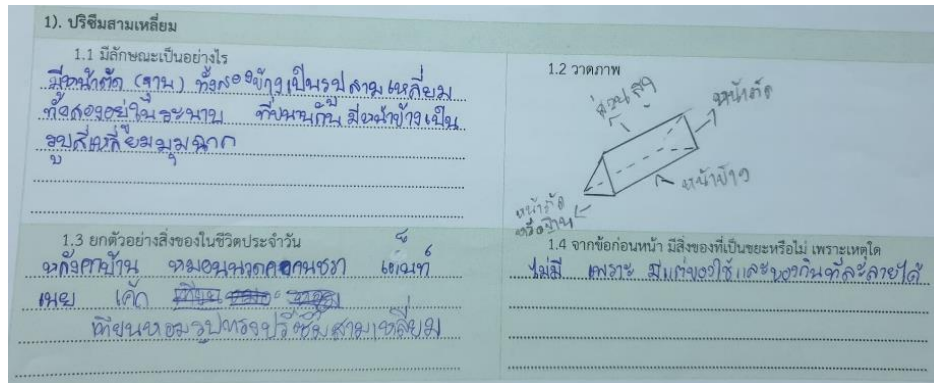 1). ปริซึมสามเหลี่ยม
1.1 มีลักษณะเป็นอย่างไร
มีหน้าตัด (ฐาน) ทั้งสองข้างเป็นรูปสามเหลี่ยม
ทั้งสองอยู่ในระนาบ ที่ขนานกัน มีหน้าข้างเป็น
รูปสี่เหลี่ยมมุมฉาก
1.2 วาดภาพ
ส่วนสูง
หน้าตัด
หน้าข้าง
หน้าตัด
หรือฐาน
1.3 ยกตัวอย่างสิ่งของในชีวิตประจำวัน
หลังคาบ้าน หมอน เต็นท์
เนย เค้ก
เทียนหอมรูปทรงปริซึมสามเหลี่ยม
1.4 จากข้อก่อนหน้า มีสิ่งของที่เป็นขยะหรือไม่ เพราะเหตุใด
ไม่มี เพราะ มีแต่ของใช้และของกินที่ละลายได้